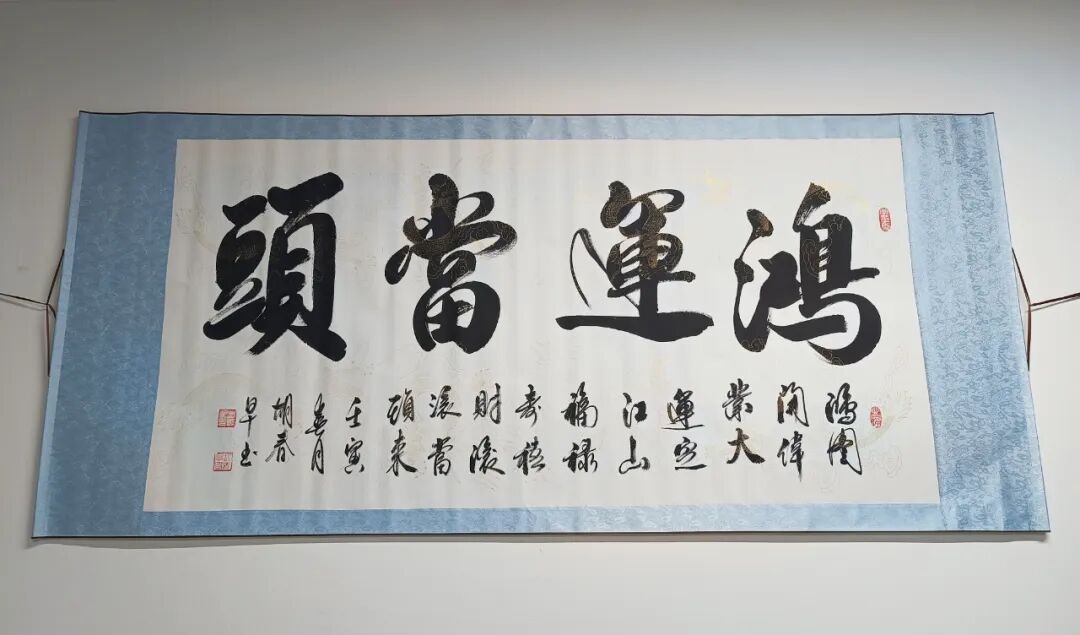 鴻運當頭
鴻圖
開偉
業大
運定
江山
福祿
壽禧
財滾
滾當
頭來
壬寅
春月
胡春
早書